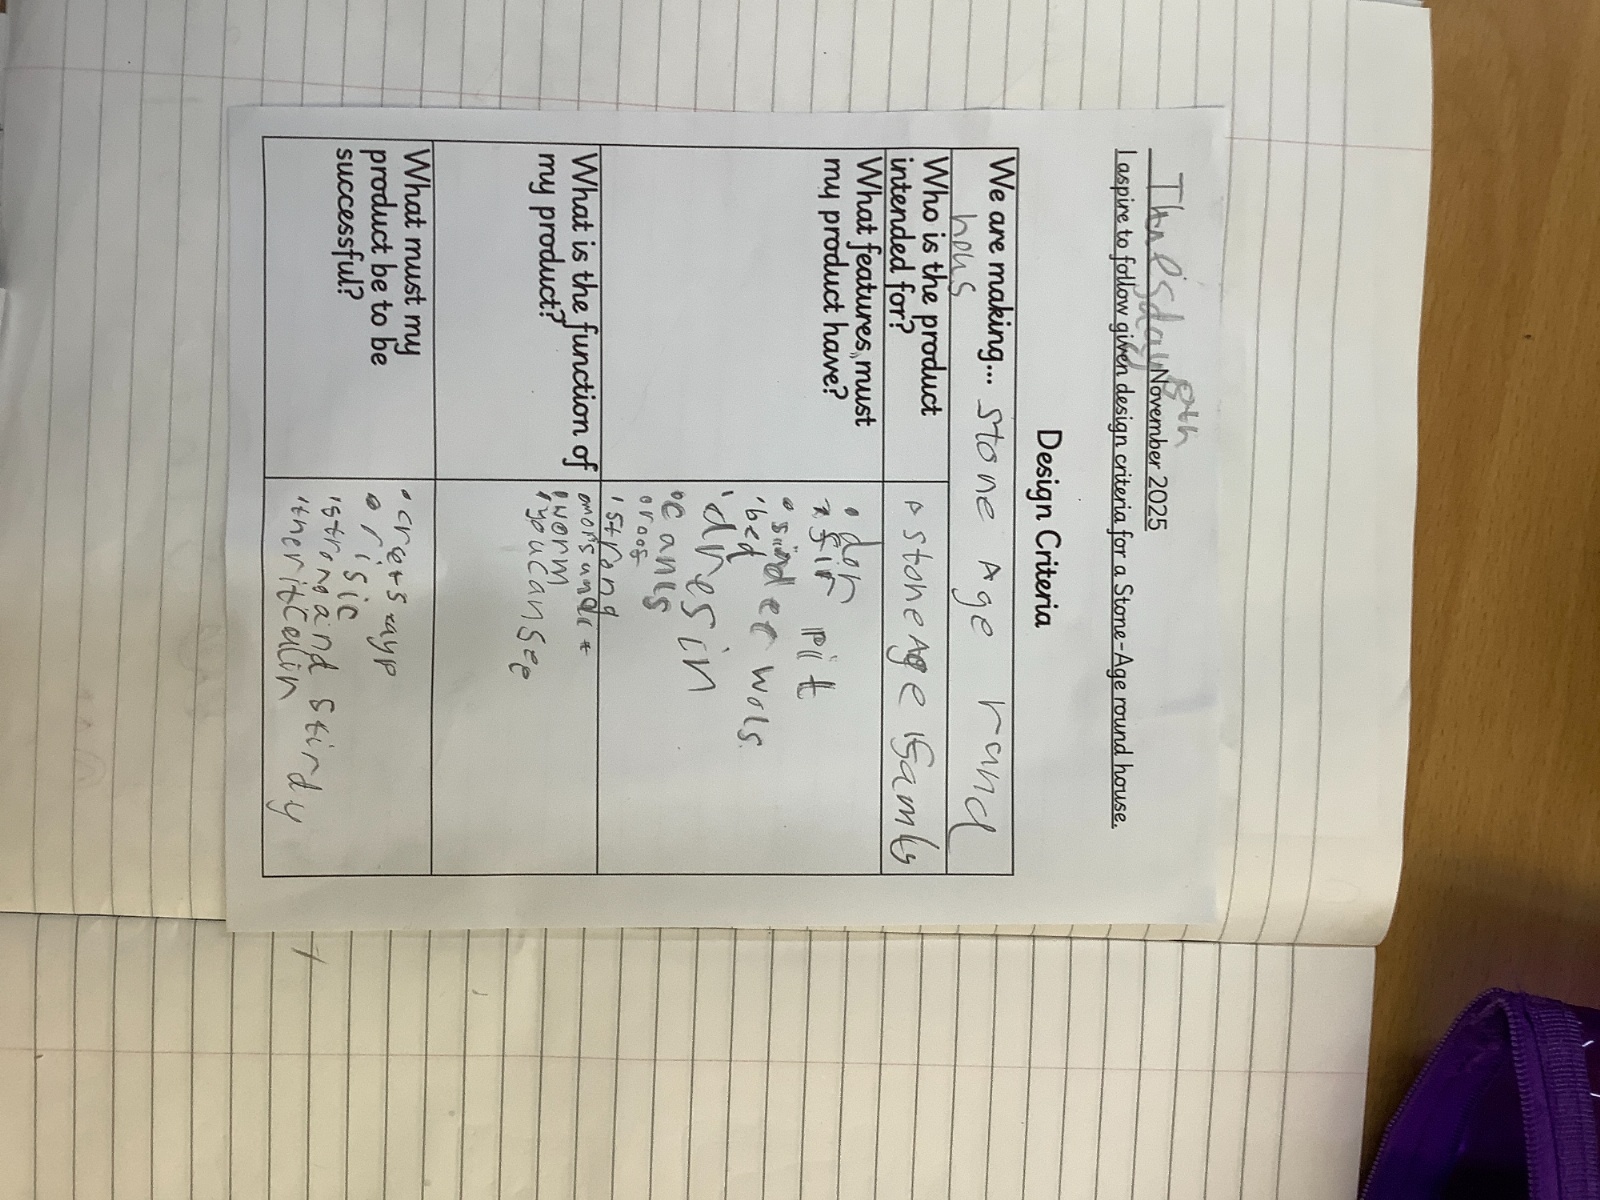 Thrisday 6th November 2025
I aspire to follow given design criteria for a Stone-Age round house.
Design Criteria
We are making... Stone Age rund
hous
Who is the product
intended for?
stone Age famly
What features, must
my product have?
don
fir pit
sinder wols
bed
dresin
roof
strong
What is the function of
my product?
worm
you can see
What must my
product be to be
successful?
strong and stirdy